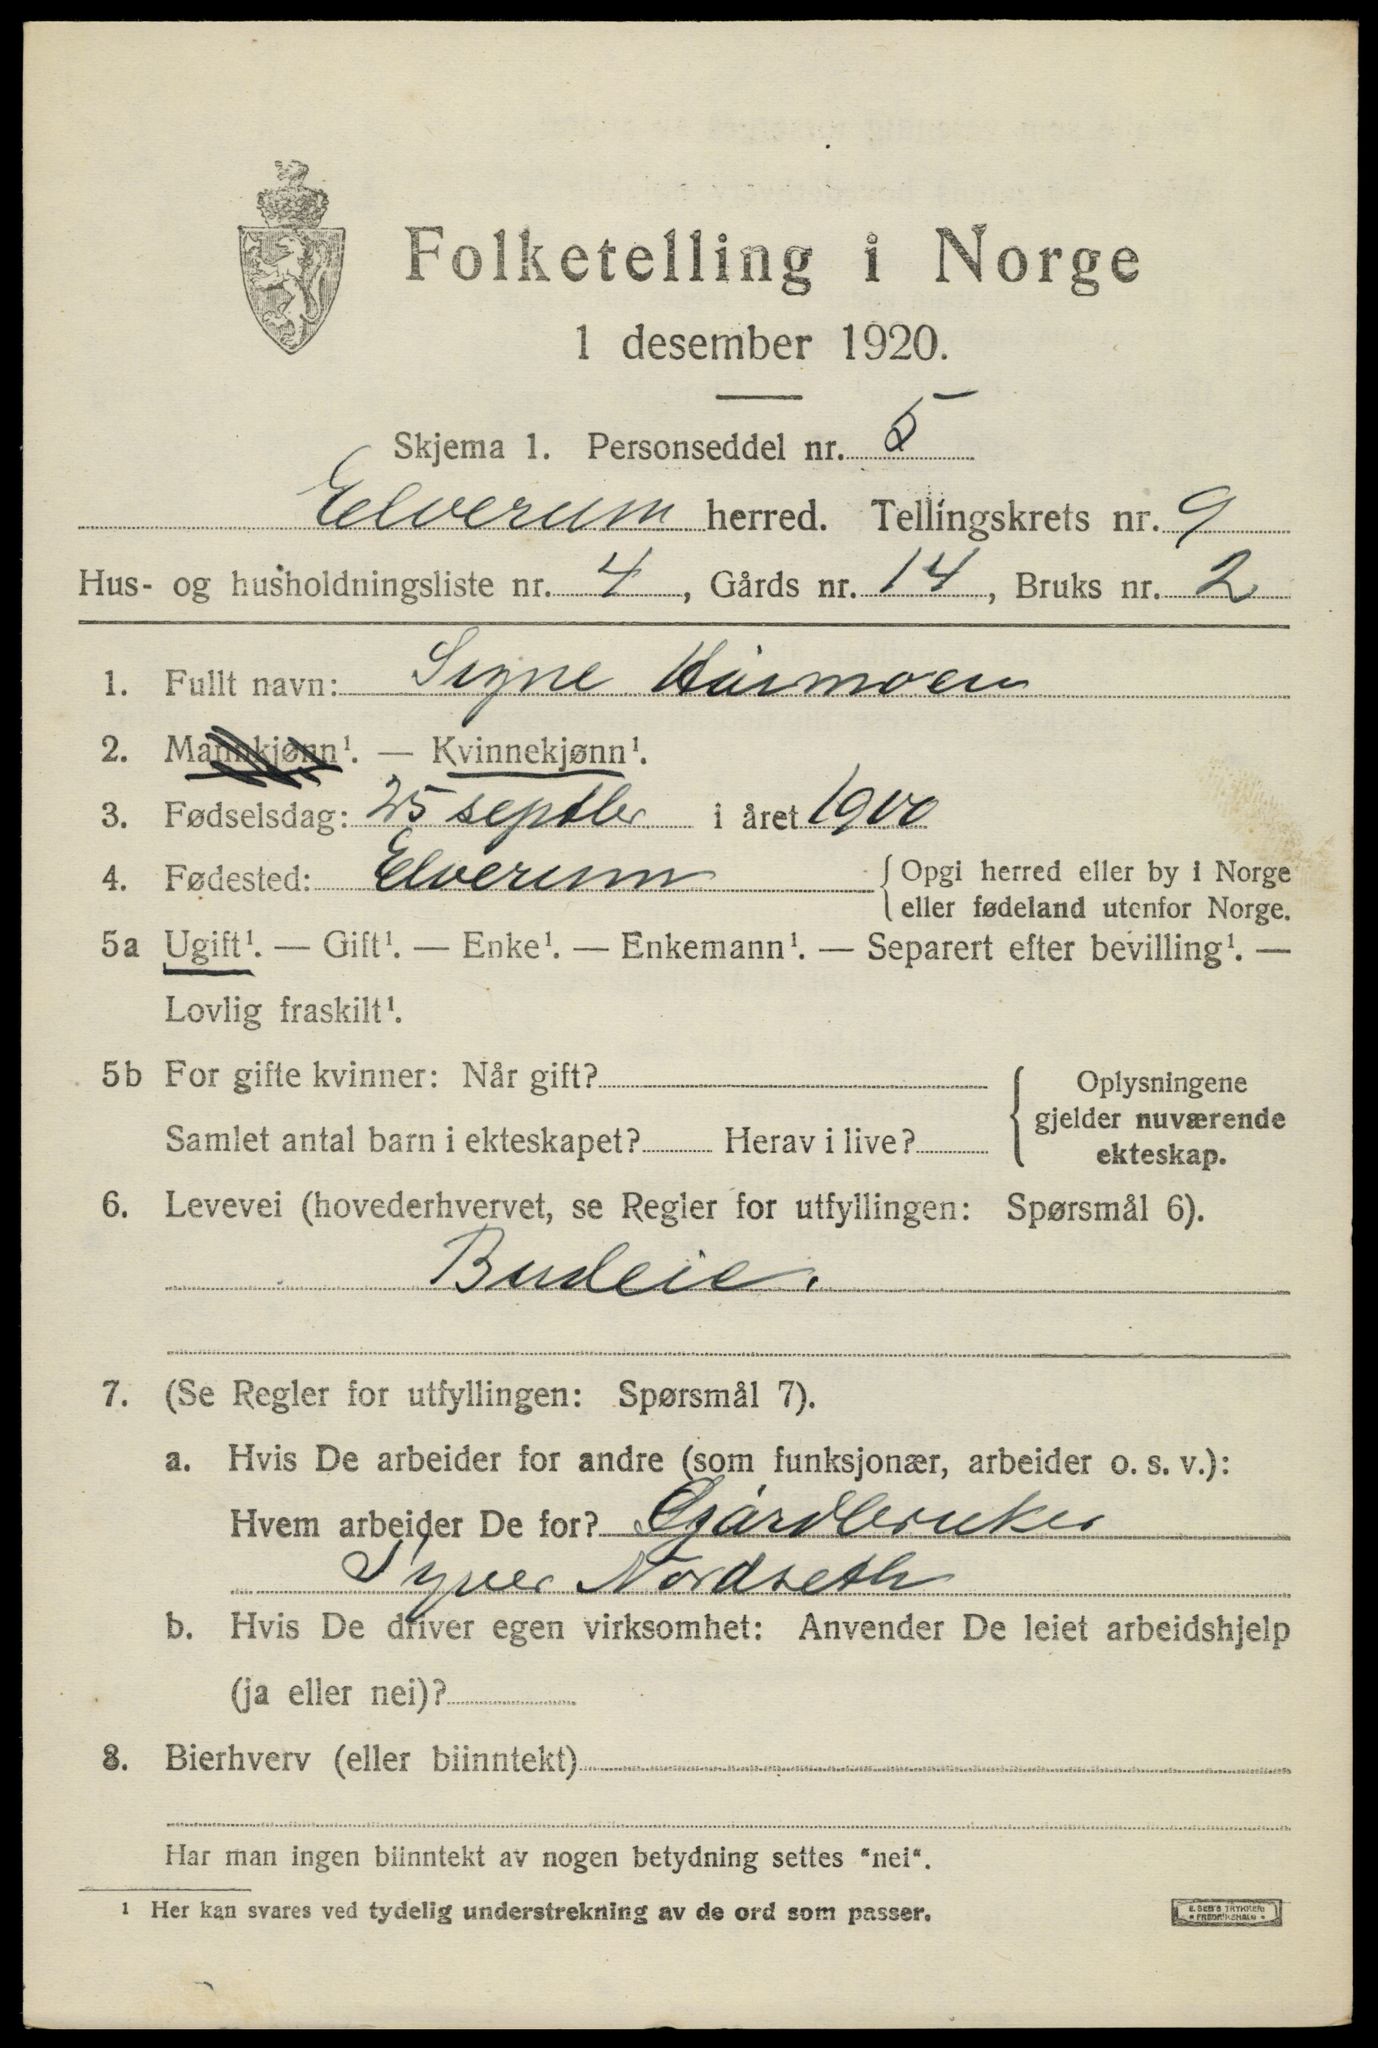 Folketelling i Norge
1 desember 1920.
Skjema 1. Personseddel nr. 5
Elverum herred. Tellingskrets nr. 9
Hus- og husholdningsliste nr. 4, Gårds nr. 14, Bruks nr. 2
1. Fullt navn: Signe
2. Mannkjønn¹. — Kvinnekjønn¹.
3. Fødselsdag: 25 septbr i året 1900
4. Fødested: Elverum {Opgi herred eller by i Norge
eller fødeland utenfor Norge.
5a Ugift¹. — Gift¹. — Enke¹. — Enkemann¹. — Separert efter bevilling¹. —
Lovlig fraskilt¹.
5b For gifte kvinner: Når gift?
Samlet antal barn i ekteskapet? Herav i live?
{Oplysningene
gjelder nuværende
ekteskap.
6. Levevei (hovederhvervet, se Regler for utfyllingen: Spørsmål 6).
Budeie.
7. (Se Regler for utfyllingen: Spørsmål 7).
a. Hvis De arbeider for andre (som funksjonær, arbeider o. s. v.):
Hvem arbeider De for? Gjårdbruker
Syver Nordseth
b. Hvis De driver egen virksomhet: Anvender De leiet arbeidshjelp
(ja eller nei)?
8. Bierhverv (eller biinntekt)
Har man ingen biinntekt av nogen betydning settes "nei".
¹ Her kan svares ved tydelig understrekning av de ord som passer.
E. SEM'S TRYKKERI
• FREDRIKSHALD •